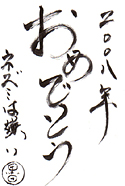 二〇〇八年
おめでとう
ネズミは